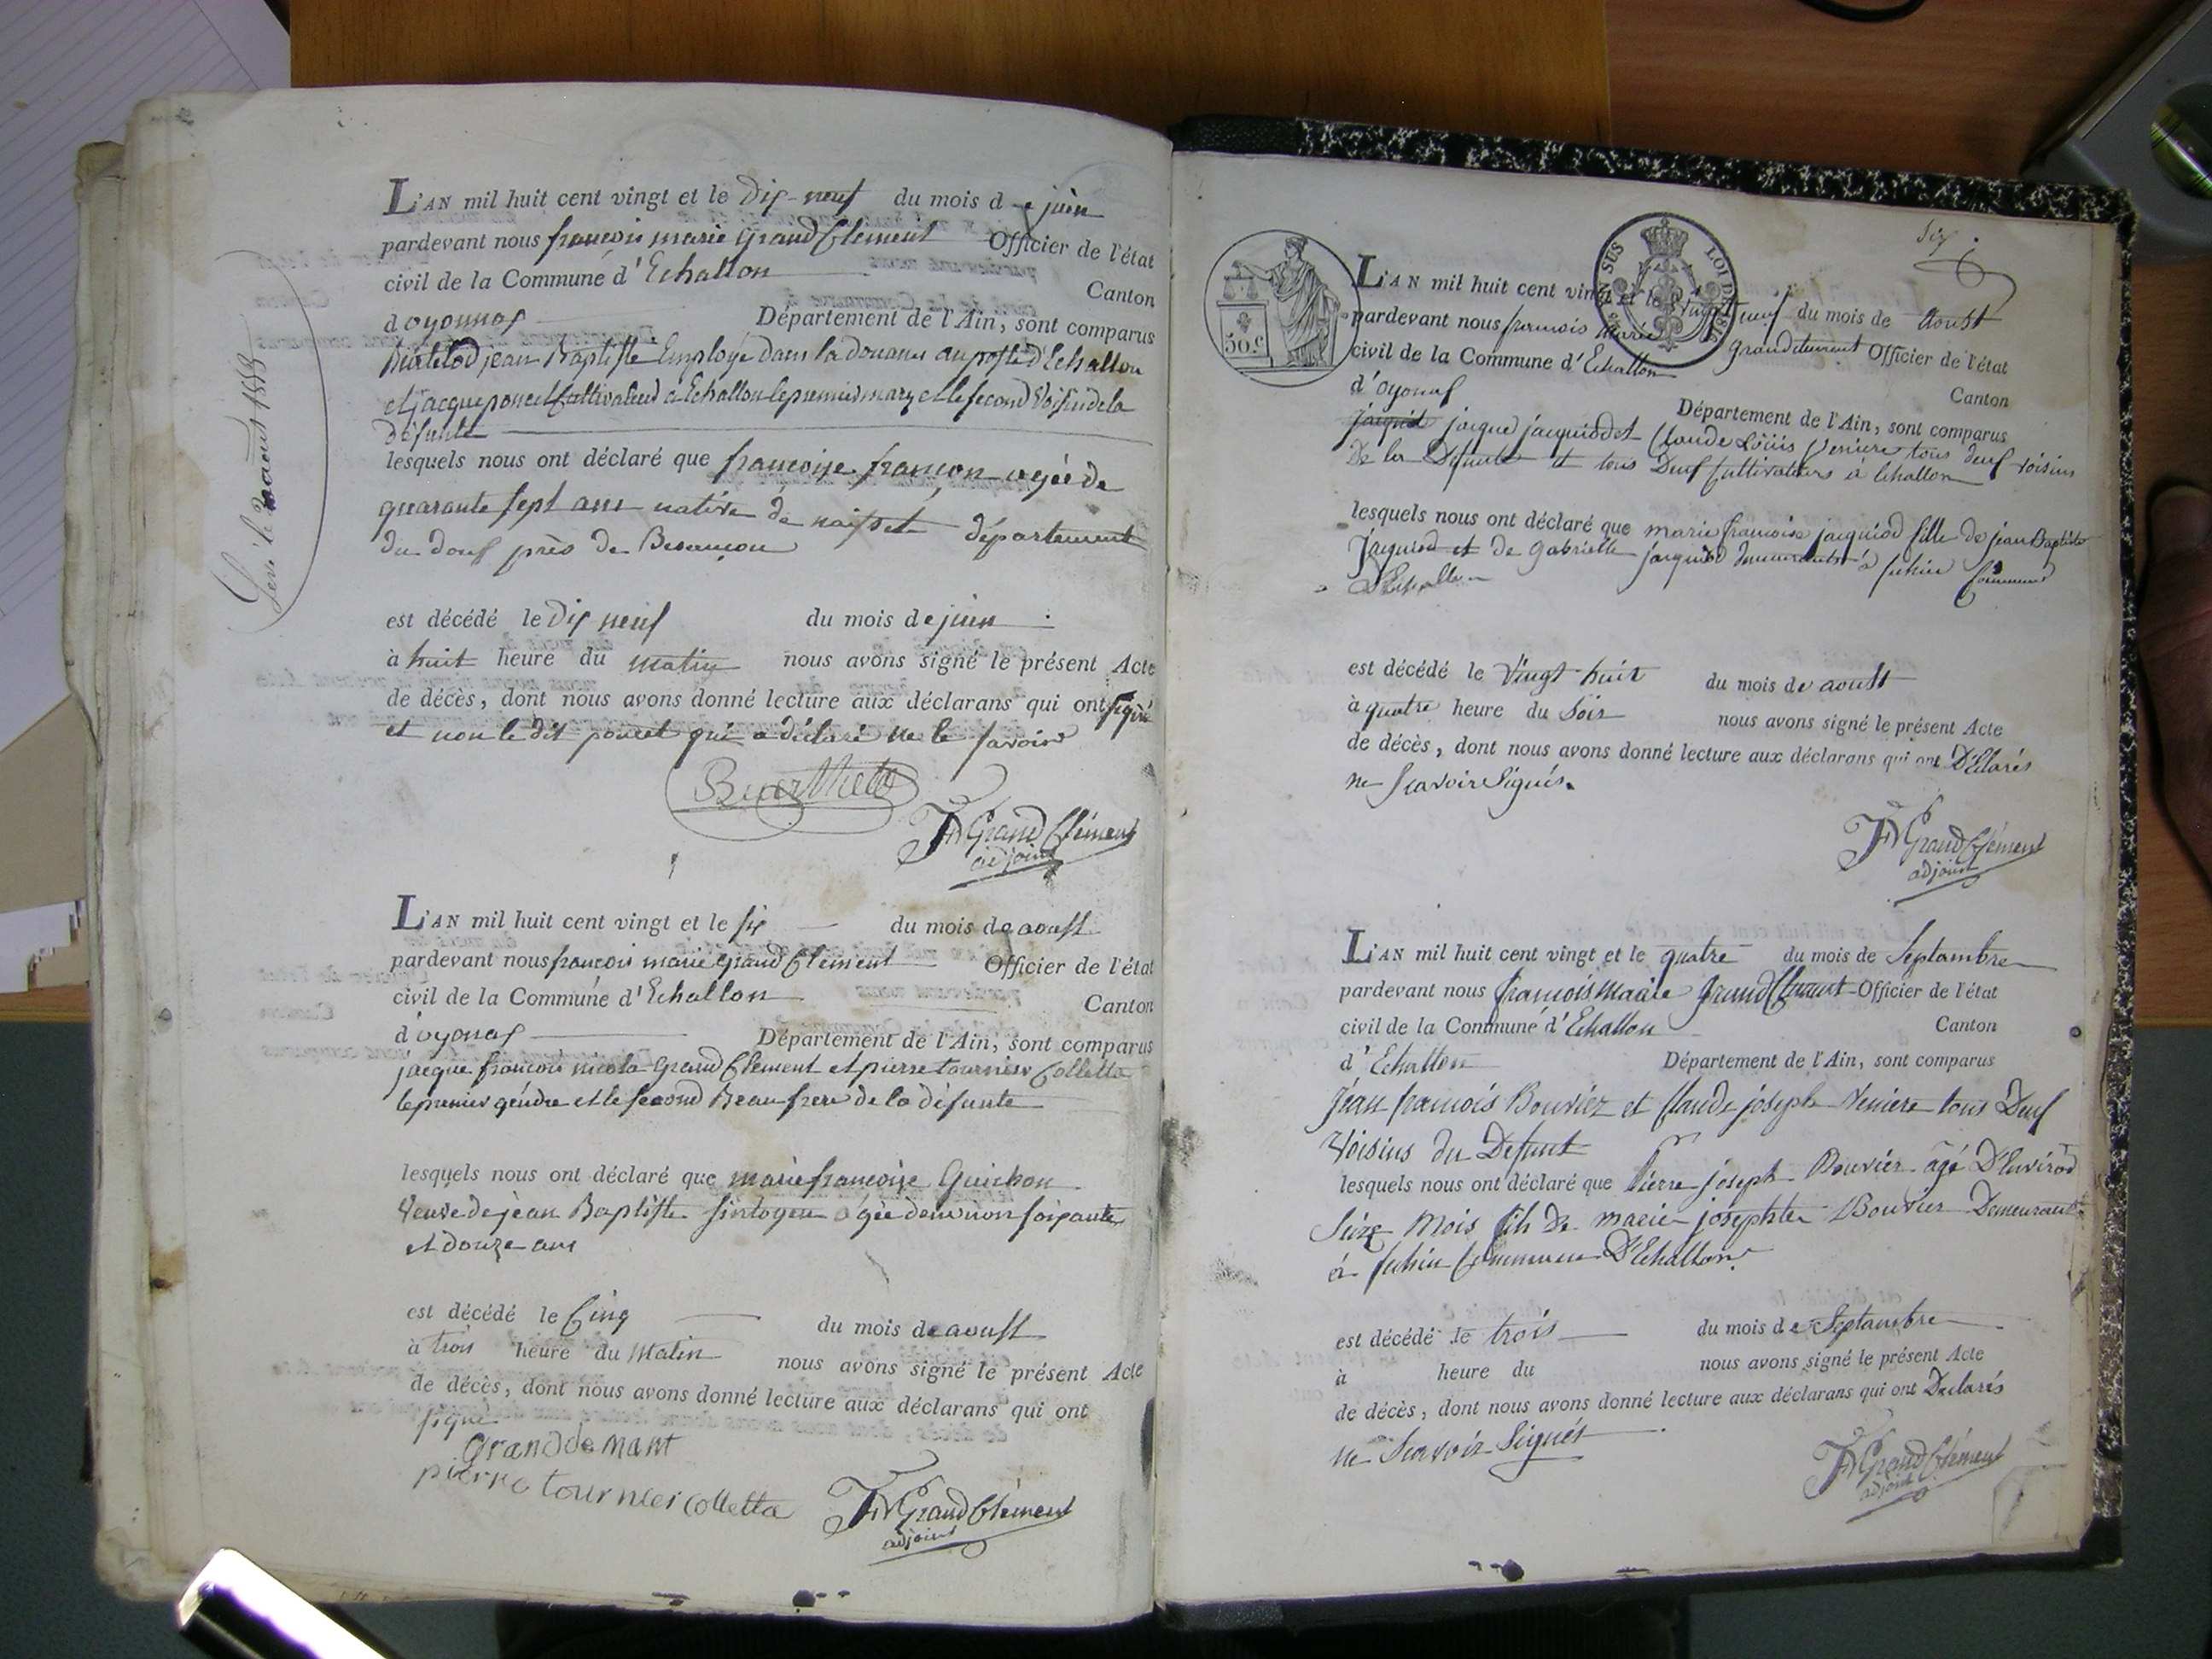 L'AN mil huit cent vingt et le Dix-neuf du mois de juin
pardevant nous francois marie Grand Clement Officier de l'état
civil de la Commune d'Echallon Canton
d'oyonnax Département de l'Ain, sont comparus
jean Baptiste Employé dans la douanes au poste d'Echallon
et jacque poncet Cultivateur a Echallon le premier mary et le second Voisin de la
défunte
lesquels nous ont déclaré que françoise françon agée de
quarante sept ans native de naisset département
du doux près de Besançon
est décédé le Dix neuf du mois de juin
à huit heure du matin nous avons signé le présent Acte
de décès, dont nous avons donné lecture aux déclarans qui ont signé
et non le dit poncet qui a déclaré ne le savoir
FM Grand Clément
adjoint
L'AN mil huit cent vingt et le six du mois de aoust
pardevant nous francois marie Grand Clement Officier de l'état
civil de la Commune d'Echallon Canton
d'oyonax Département de l'Ain, sont comparus
jacque françois nicola Grand Clement et pierre tournier Colletta
le premier gendre et le second Beau frere de la défunte
lesquels nous ont déclaré que marie françoise Guichon
Veuve de jean Baptiste agée denviron soixante
et douze ans
est décédé le Cinq du mois de aoust
à trois heure du Matin nous avons signé le présent Acte
de décès, dont nous avons donné lecture aux déclarans qui ont
signé
pierre tournier colletta
FM Grand Clément
adjoint
six
50 c
L'AN mil huit cent vingt et le vingt neuf du mois de Aoust
pardevant nous francois Marie grandclement Officier de l'état
civil de la Commune d'Echallon Canton
d'oyonax Département de l'Ain, sont comparus
jacque jacquiod et Claude Louis Veniere tous deux voisins
De la Defunte et tous Deux Cultivateurs a Echallon
lesquels nous ont déclaré que marie francoise jacquiod fille de jean Baptiste
Jacquiod et de Gabrielle jacquiod demeurants à Commune
d'Echallon
est décédé le Vingt huit du mois de aoust
à quatre heure du Soir nous avons signé le présent Acte
de décès, dont nous avons donné lecture aux déclarans qui ont Déclarés
ne Scavoir Signés.
FM Grand Clément
adjoint
L'AN mil huit cent vingt et le quatre du mois de Septambre
pardevant nous francois Marie Grand Clement Officier de l'état
civil de la Commune d'Echallon Canton
d'Echallon Département de l'Ain, sont comparus
Jean francois Bouvier et Claude joseph Veniere tous Deux
Voisins du Defunt
lesquels nous ont déclaré que Pierre joseph Bouvier agé D'Environ
Seize Mois fils de marie josephte Bouvier Demeurant
à Commune D'Echallon
est décédé le trois du mois de Septambre
à heure du nous avons signé le présent Acte
de décès, dont nous avons donné lecture aux déclarans qui ont Declarés
ne Scavoir Signés
FM Grand Clément
adjoint